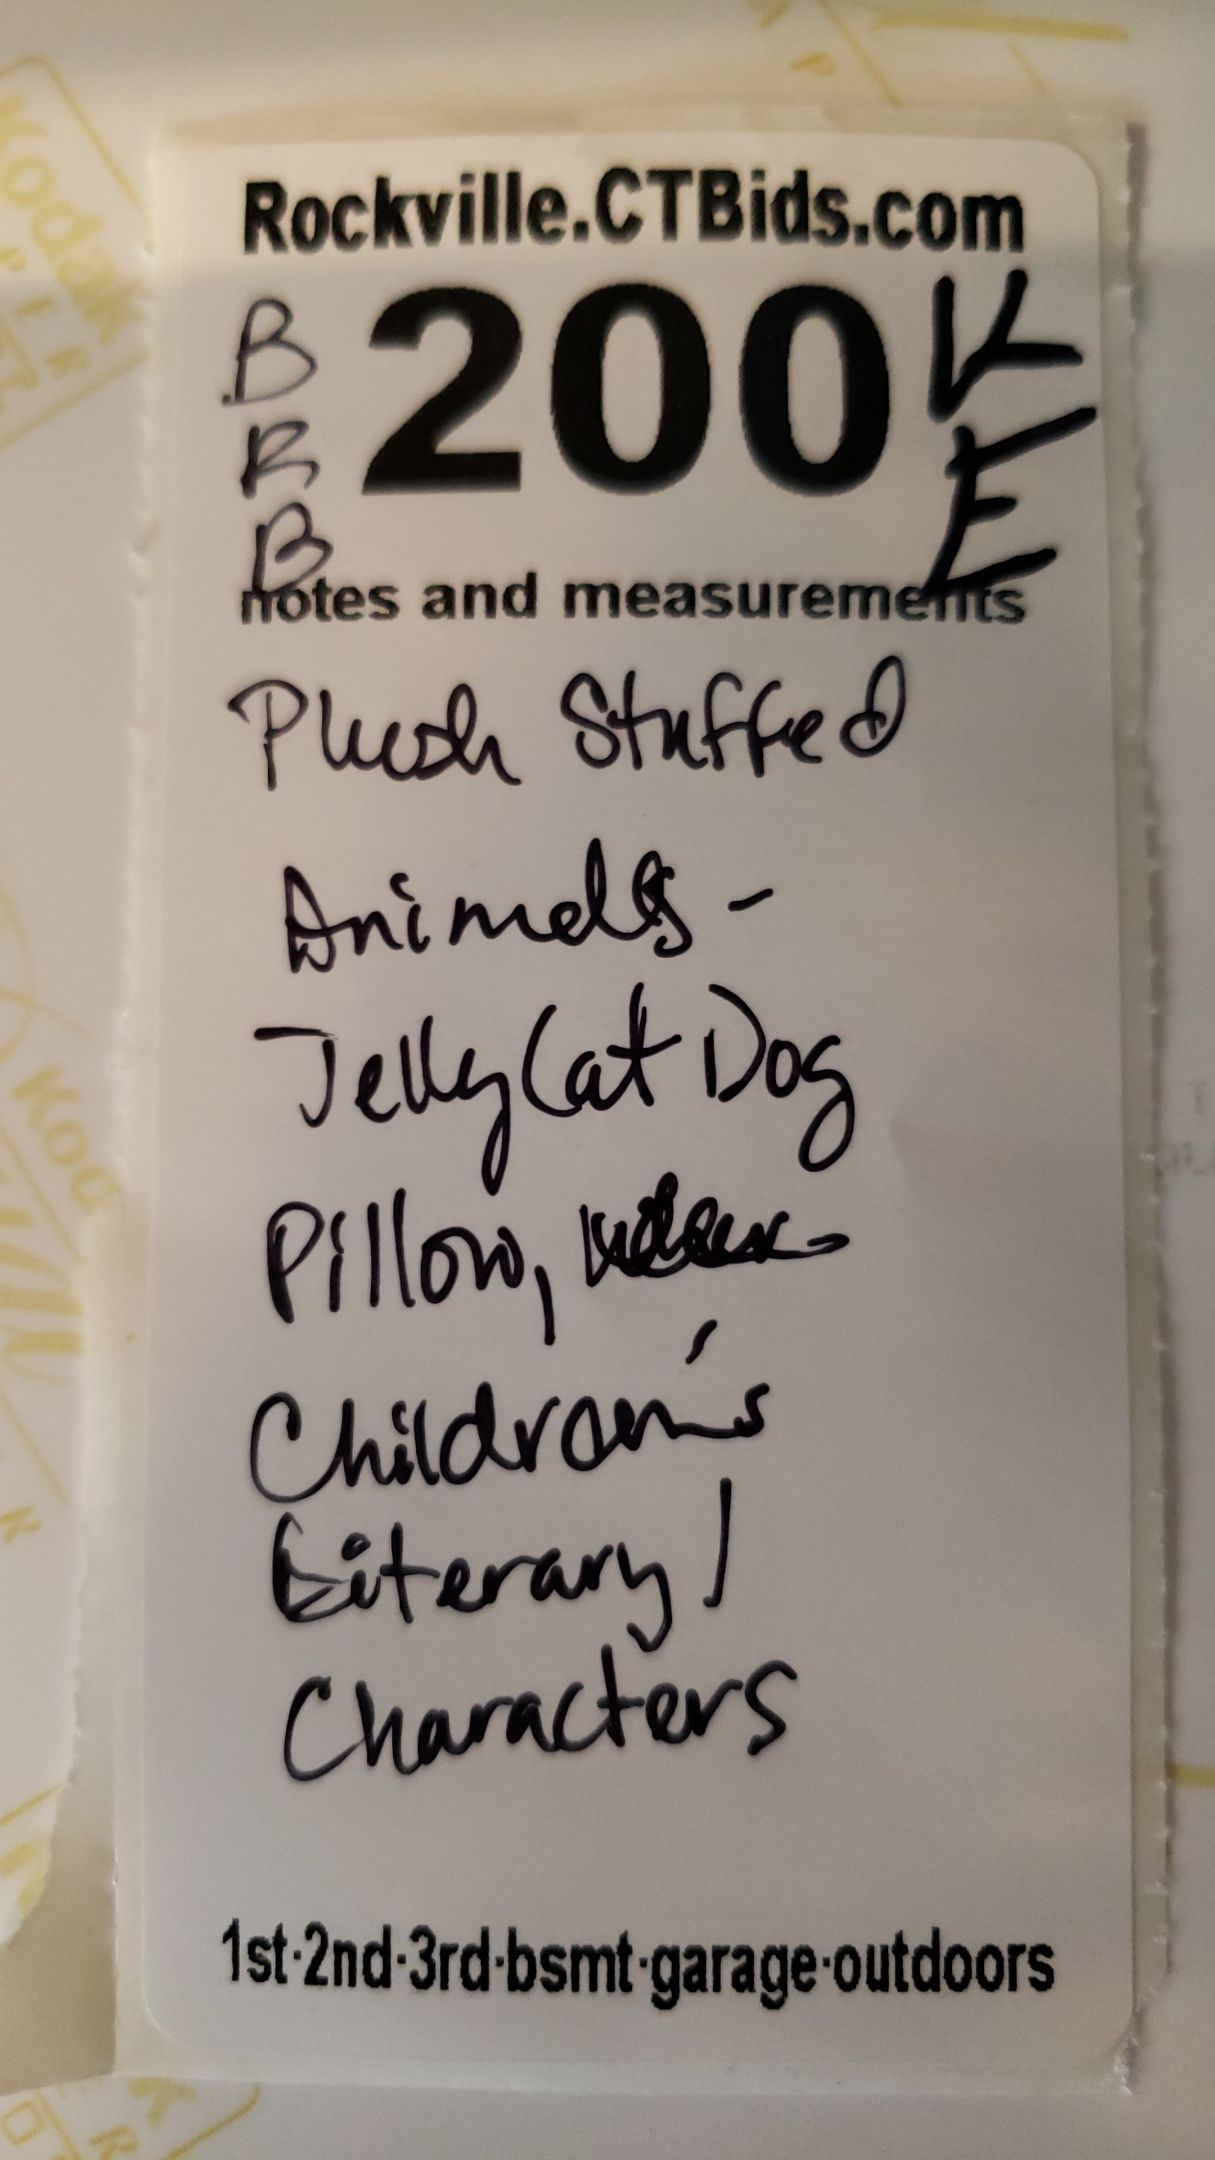 Rockville.CTBids.com
B 200 V
R E
B
notes and measurements
Plush Stuffed
Animals -
JellyCat Dog
Pillow,
Children's
Literary /
Characters
1st·2nd·3rd·bsmt·garage·outdoors
Kodak
Kod